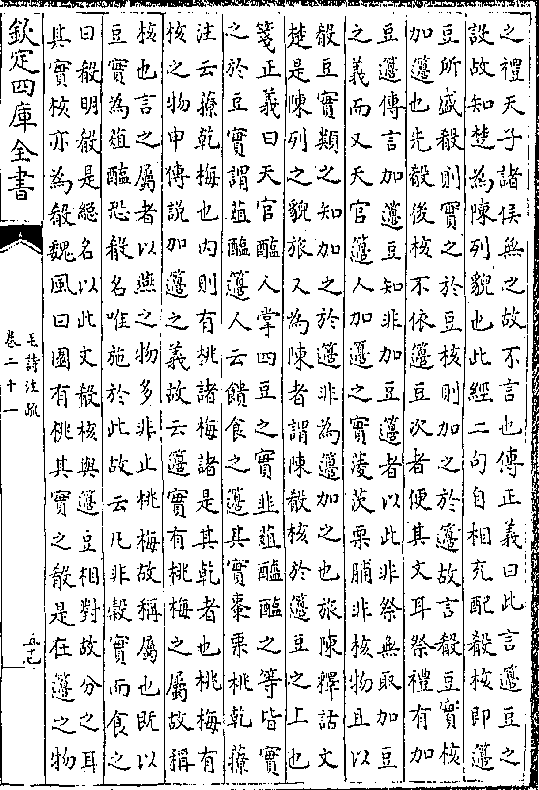 之禮天子諸侯無之故不言也傳正義曰此言籩豆之
設故知楚為陳列貌也此經二句自相充配殽核即籩
豆所盛殽則實之於豆核則加之於籩故言殽豆實核
加籩也先殽後核不依籩豆次者便其文耳祭禮有加
豆籩傳言加籩豆知非加豆籩者以此非祭無取加豆
之義而又天官籩人加籩之實淩芡栗脯非核物且以
殽豆實類之知加之於籩非為籩加之也旅陳釋詁文
楚是陳列之貌旅又為陳者謂陳殽核於籩豆之上也
箋正義曰天官醢人掌四豆之實韭菹醯醢之等皆實
之於豆實謂菹醢籩人云饋食之籩其實棗栗桃乾䕩
注云䕩乾梅也内則有桃諸梅諸是其乾者也桃梅有
核之物申傳說加籩之義故云籩實有桃梅之屬故稱
核也言之屬者以燕之物多非止桃梅故稱屬也既以
豆實為菹醢恐殽名唯施於此故云凡非穀實而食之
曰殽明殽是總名以此文殽核與籩豆相對故分之耳
其實核亦為殽魏風曰園有桃其實之殽是在籩之物
欽定四庫全書
毛詩注疏
卷二十一